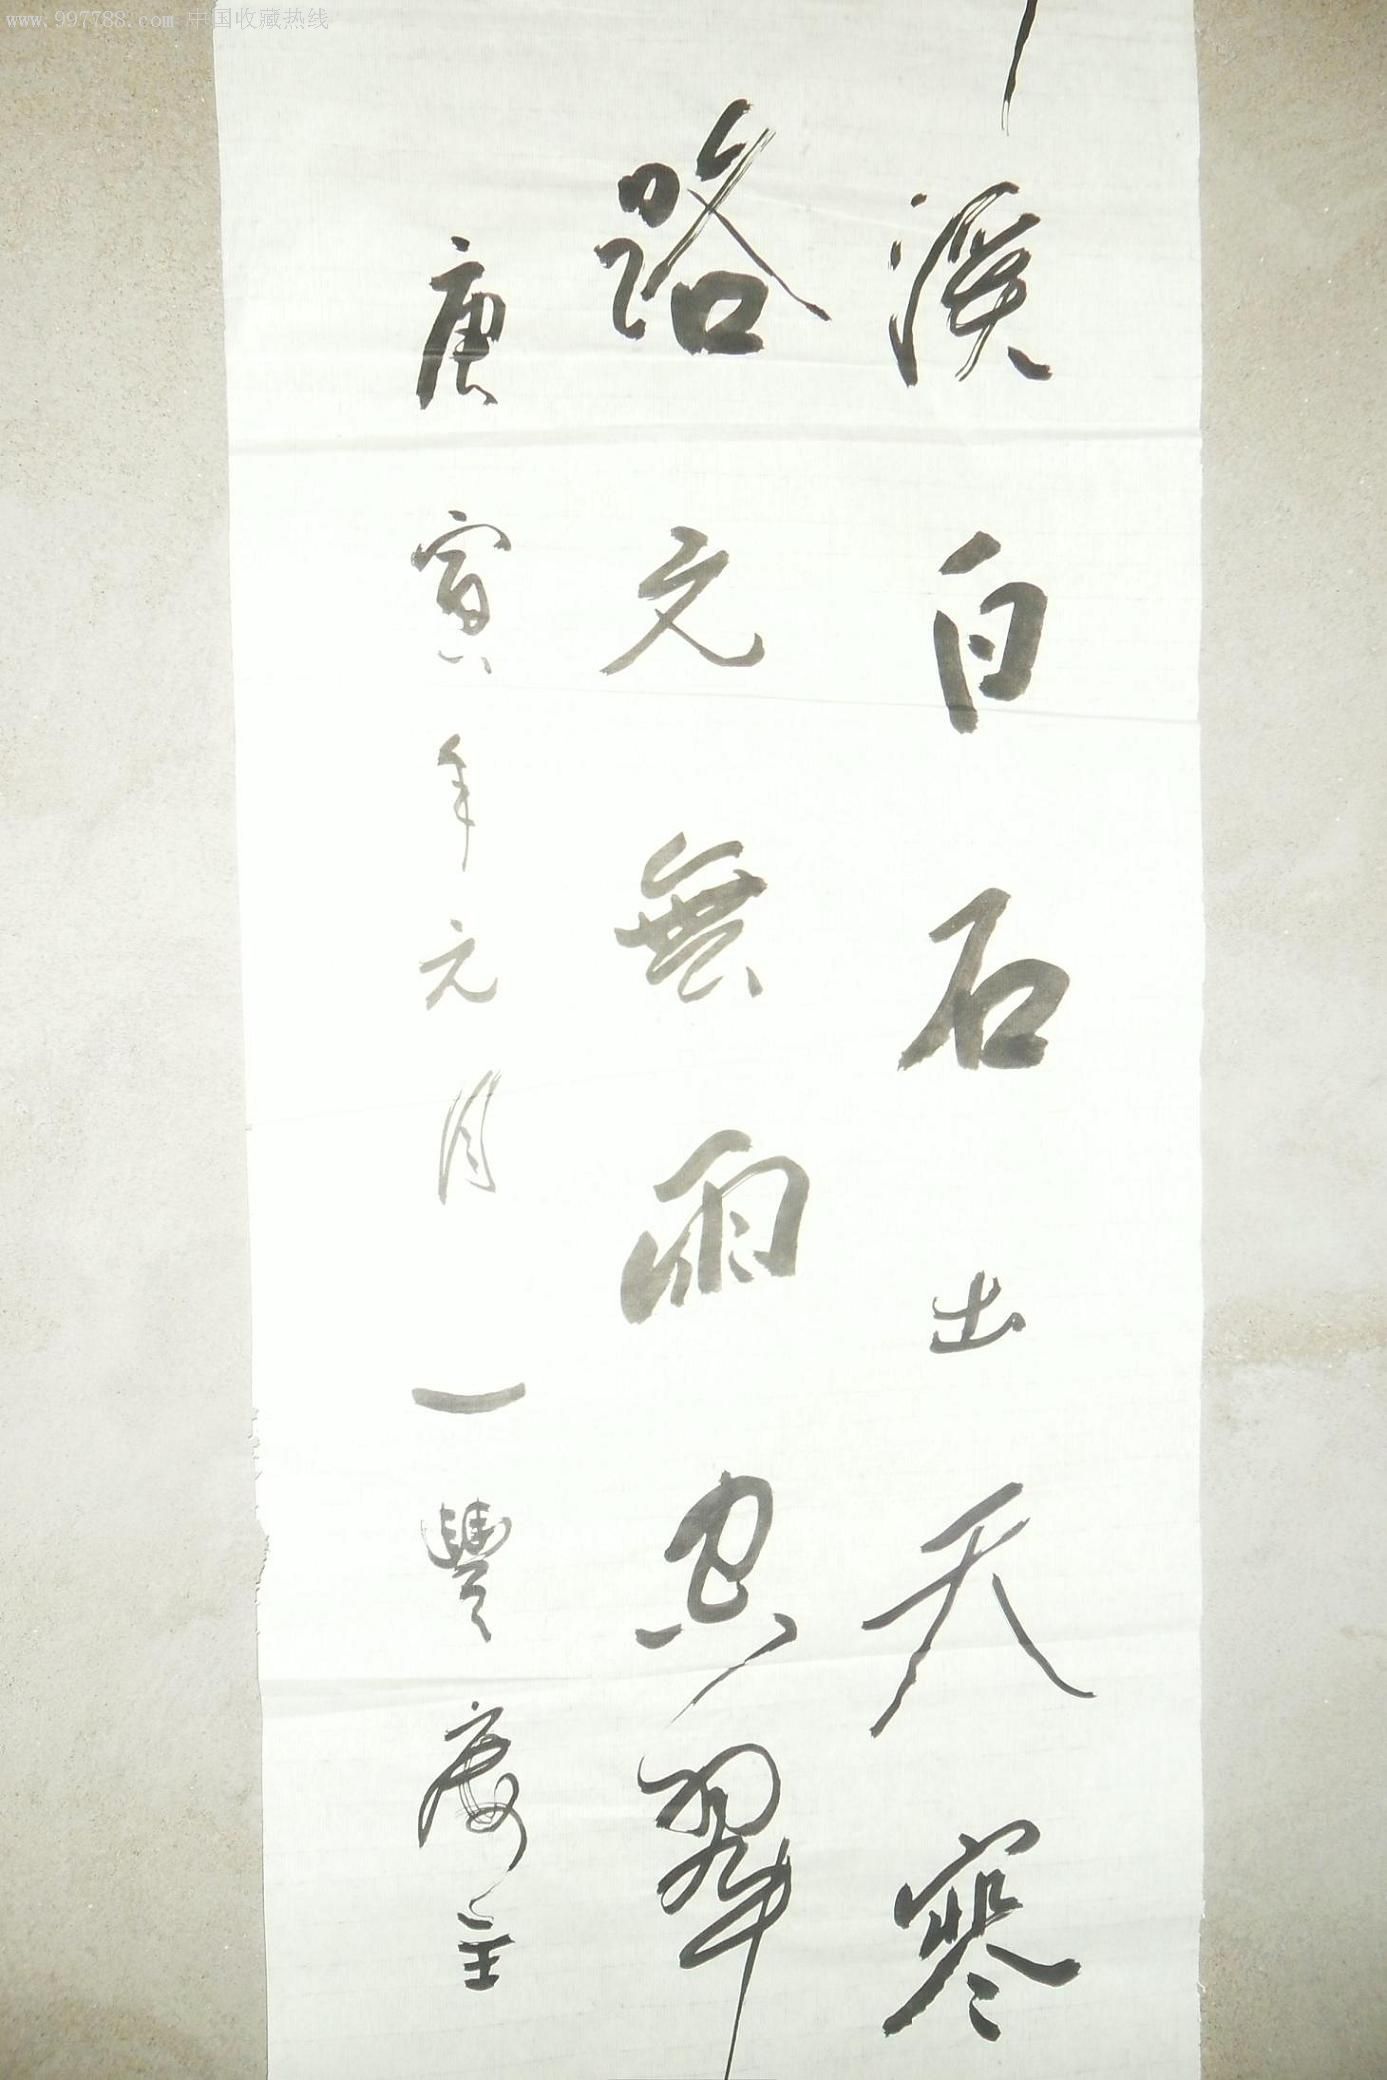 www.997788.com 中国收藏热线
溪白石出天寒
路元無雨空翠
庚寅年元月一豐慶主